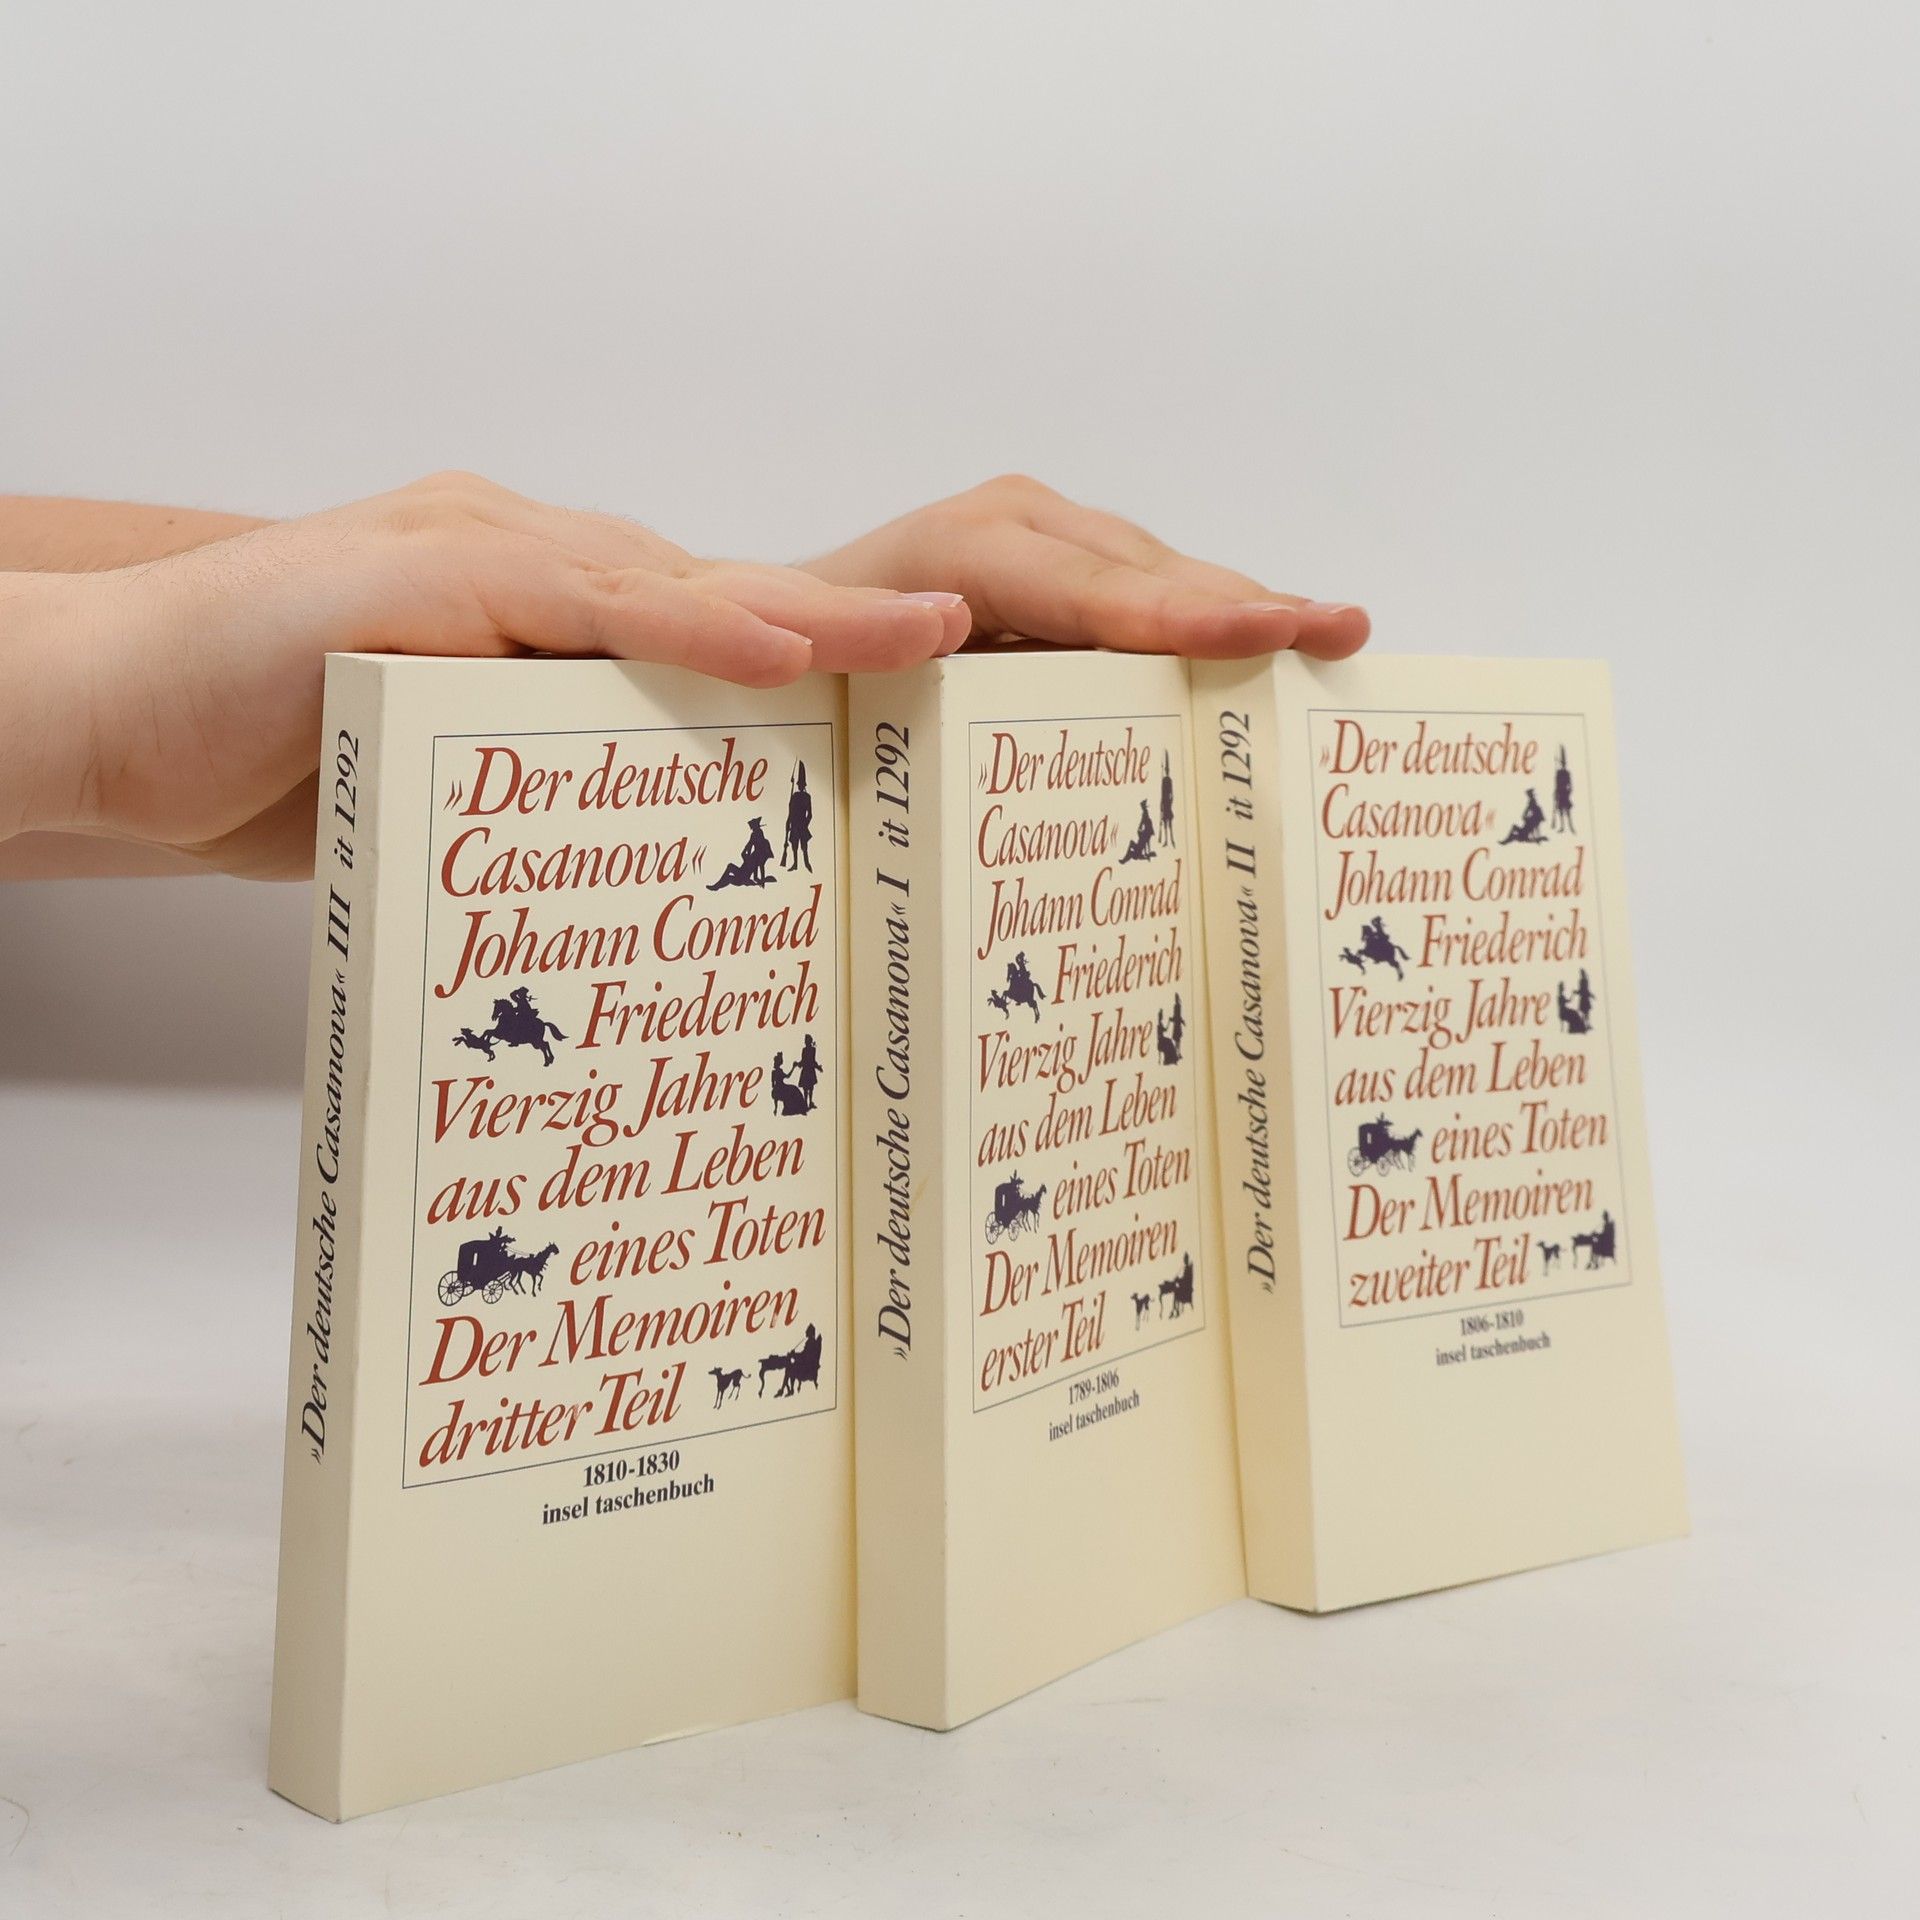 »Der deutsche Casanova« III it 1292
»Der deutsche
Casanova«
Johann Conrad
Friederich
Vierzig Jahre
aus dem Leben
eines Toten
Der Memoiren
dritter Teil
1810-1830
insel taschenbuch
»Der deutsche Casanova« I it 1292
»Der deutsche
Casanova«
Johann Conrad
Friederich
Vierzig Jahre
aus dem Leben
eines Toten
Der Memoiren
erster Teil
1789-1806
insel taschenbuch
»Der deutsche Casanova« II it 1292
»Der deutsche
Casanova«
Johann Conrad
Friederich
Vierzig Jahre
aus dem Leben
eines Toten
Der Memoiren
zweiter Teil
1806-1810
insel taschenbuch